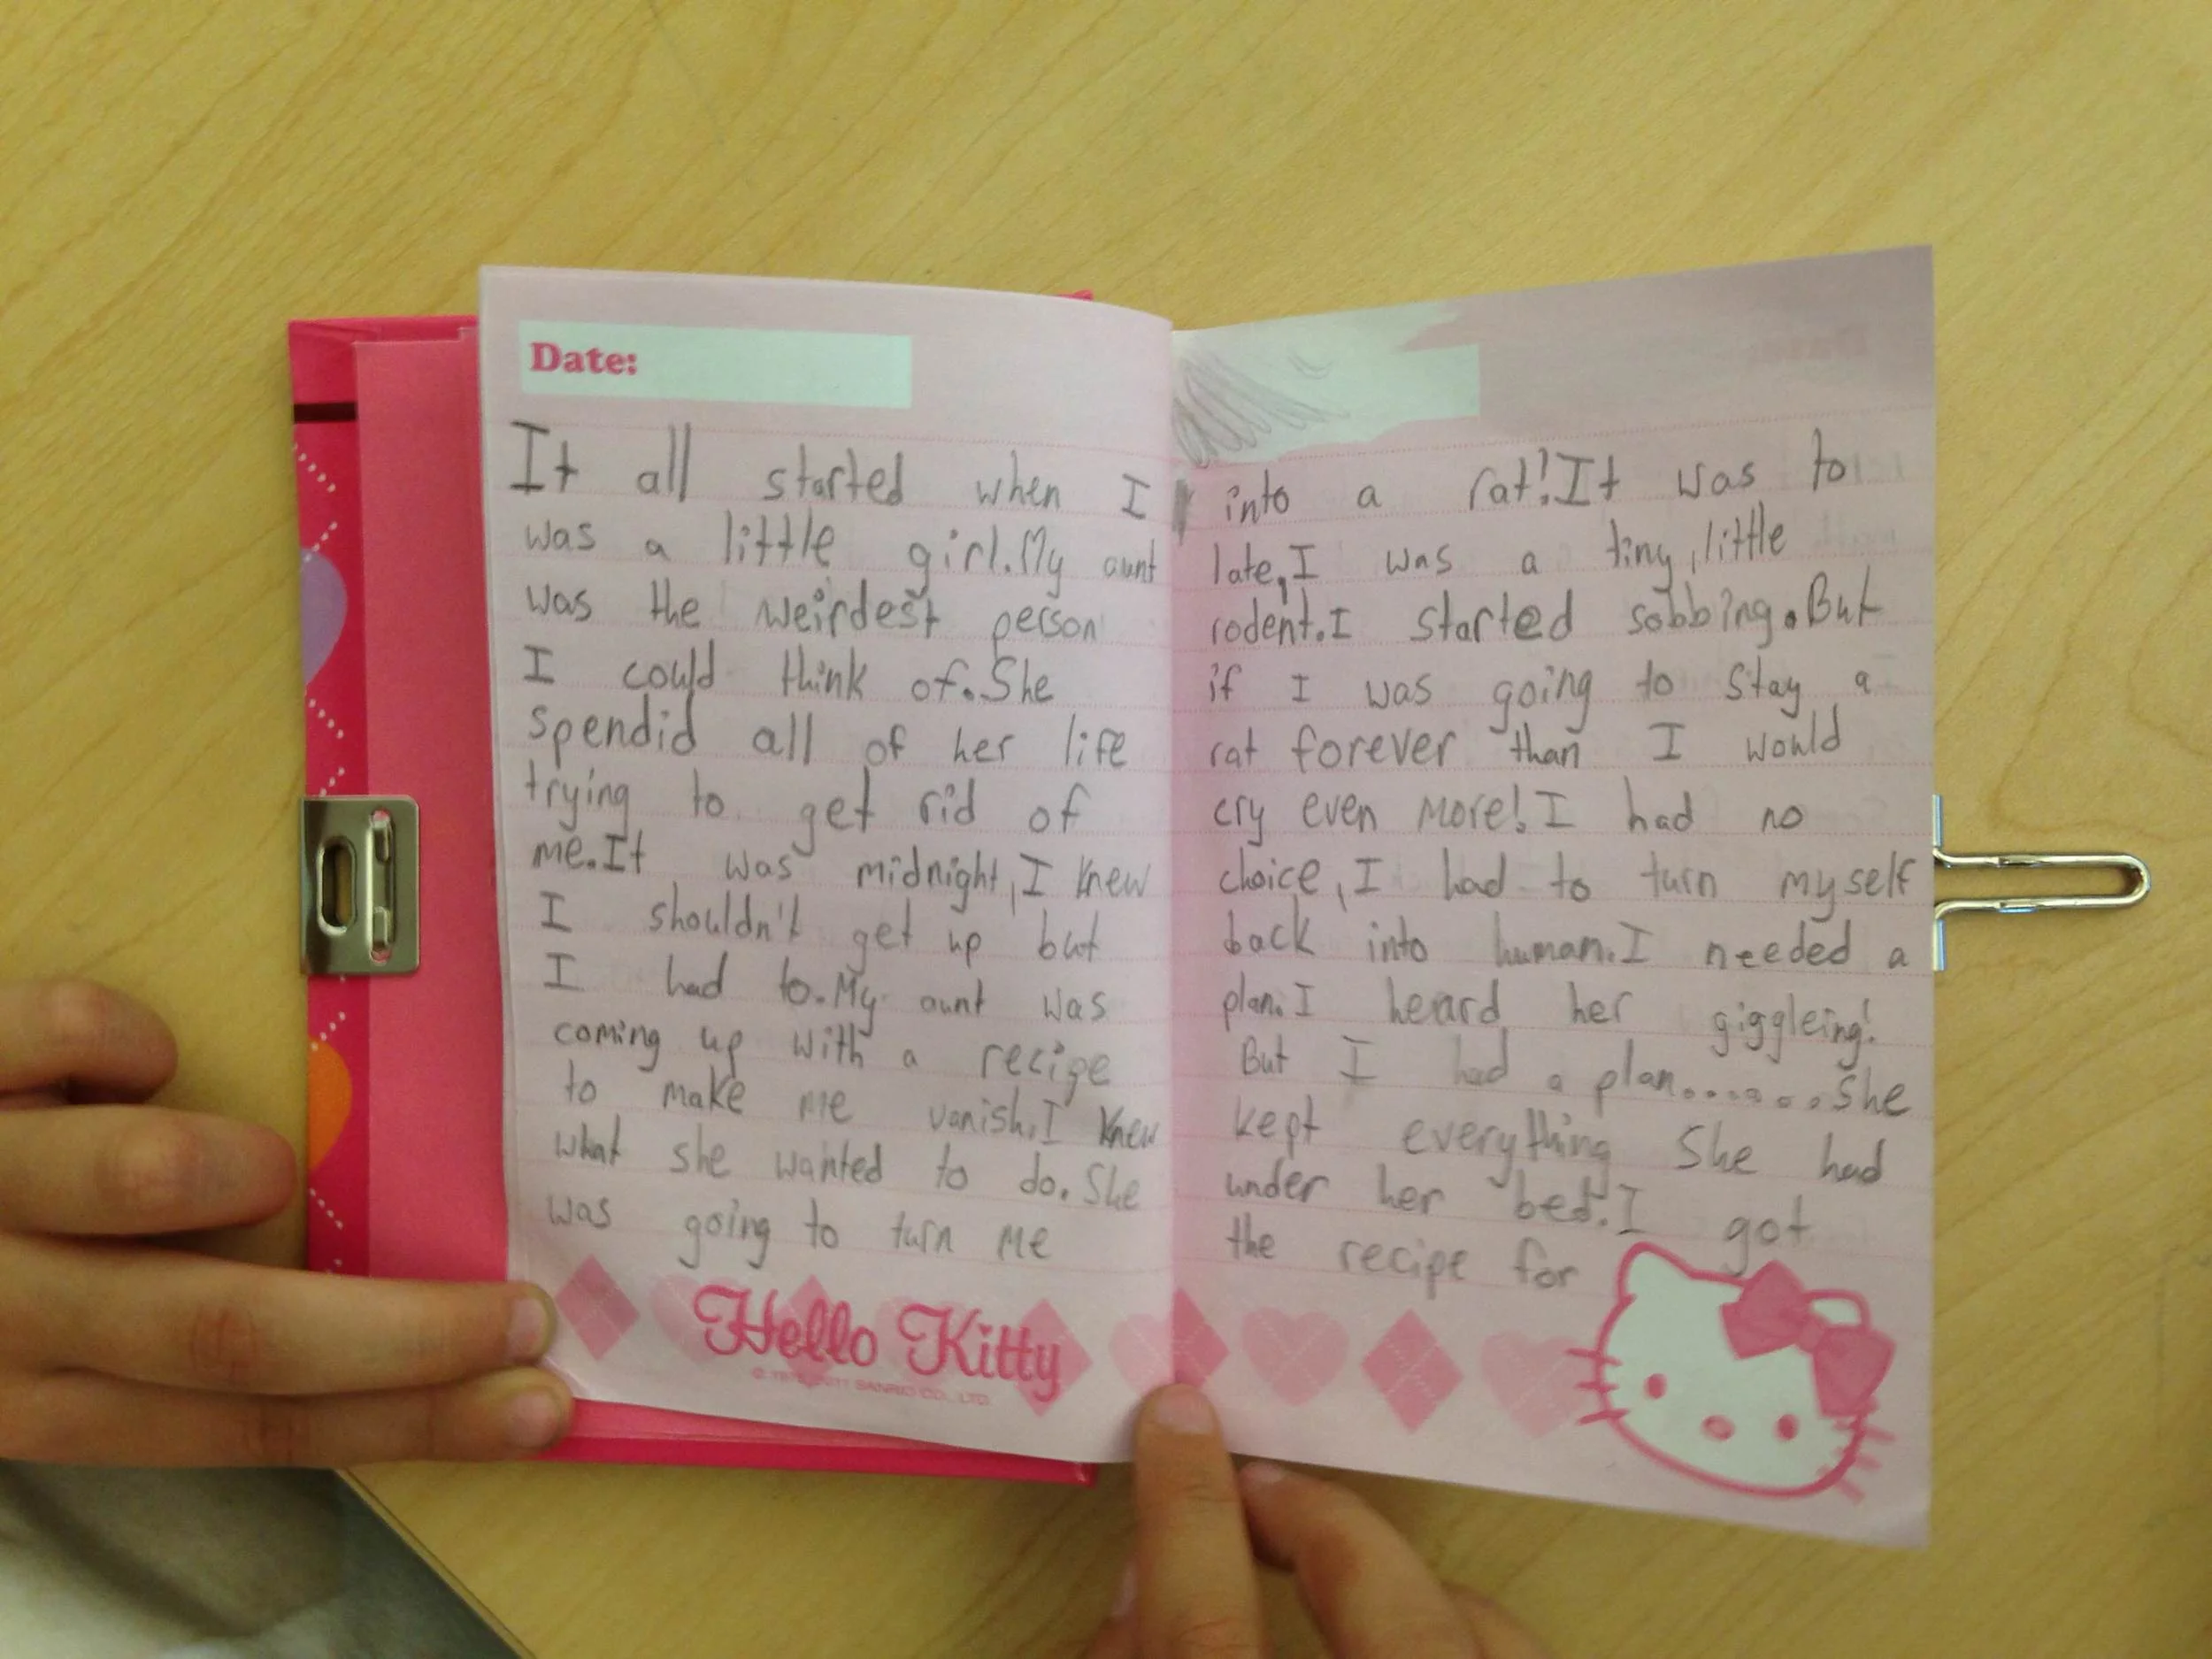 Date:
It all started when I
was a little girl. My aunt
was the weirdest person
I could think of. She
spendid all of her life
trying to get rid of
me. It was midnight, I knew
I shouldn't get up but
I had to. My aunt was
coming up with a recipe
to make me vanish. I knew
what she wanted to do. She
was going to turn me
Hello Kitty
SANRIO CO., LTD.
into a rat! It was to
late, I was a tiny, little
rodent. I started sobbing. But
if I was going to stay a
rat forever than I would
cry even more! I had no
choice, I had to turn myself
back into human. I needed a
plan. I heard her giggleing!
But I had a plan........She
kept everything She had
under her bed. I got
the recipe for